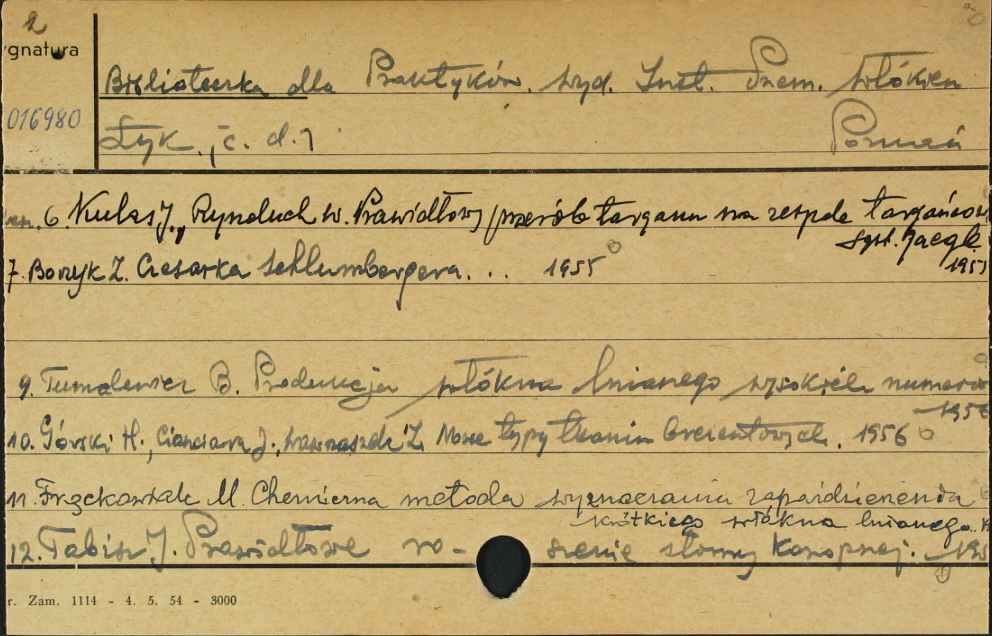 2
ygnatura
016980
Biblioteczka dla Praktyków. wyd. Inst. Przem. Włókien
Łyk., c. d. 1
Poznań
6. Kulas J., Rynduch W. Prawidłowy przerób targanu na zespole targańców
Syst. Jaegle
195
7. Boryk Z. Czesarka Schlumbergera. . . 1955
9. Tumalewicz B. Produkcja włókna lnianego wysokich numerów
1956
10. Górski H., Cianciara J., Wawraszek Z. Nowe typy tkanin brezentowych. 1956
11. Frąckowiak M. Chemiczna metoda wyznaczania zapaździerzenia
krótkiego włókna lnianego.
12. Tabisz J. Prawidłowe ro-szenie słomy konopnej. 195
r. Zam. 1114 - 4. 5. 54 - 3000